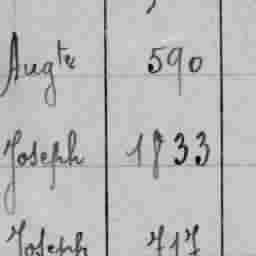 Aug^te 590
Joseph 1833
Joseph 717